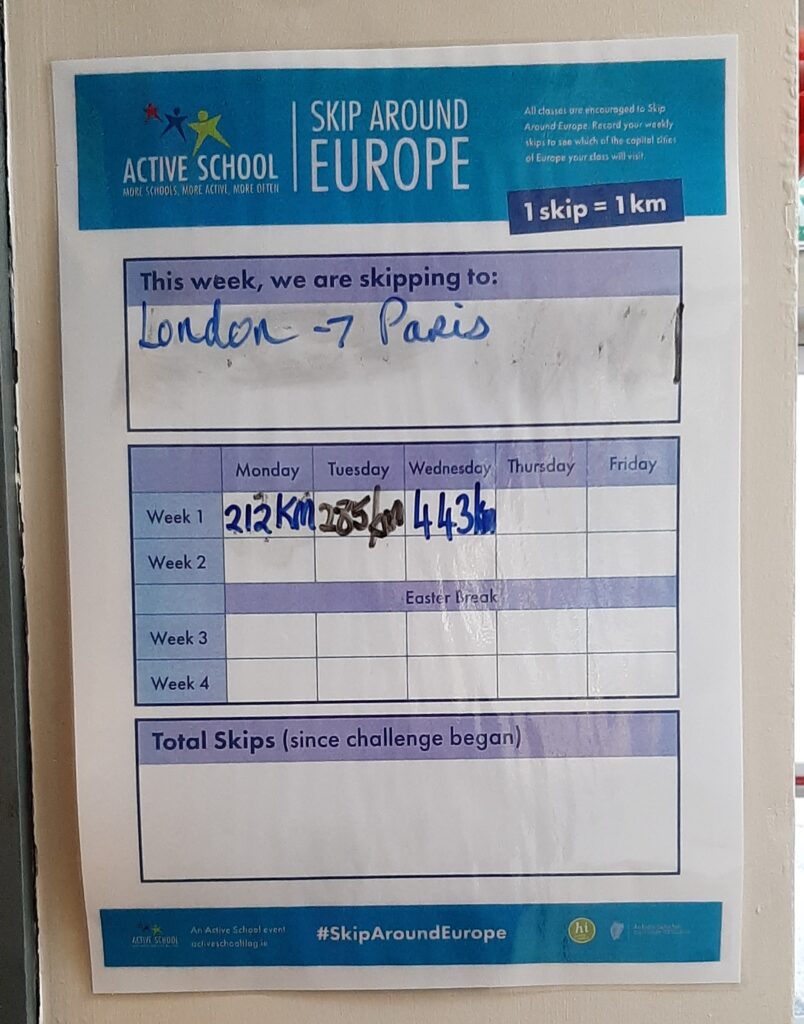 ACTIVE SCHOOL
MORE SCHOOLS, MORE ACTIVE, MORE OFTEN
SKIP AROUND
EUROPE
All classes are encouraged to Skip
Around Europe. Record your weekly
skips to see which of the capital cities
of Europe your class will visit.
1 skip = 1 km
This week, we are skipping to:
London → Paris
Monday Tuesday Wednesday Thursday Friday
Week 1 212 KM 285km 443km
Week 2
Easter Break
Week 3
Week 4
Total Skips (since challenge began)
ACTIVE SCHOOL
An Active School event
activeschoolflag.ie
#SkipAroundEurope
hi